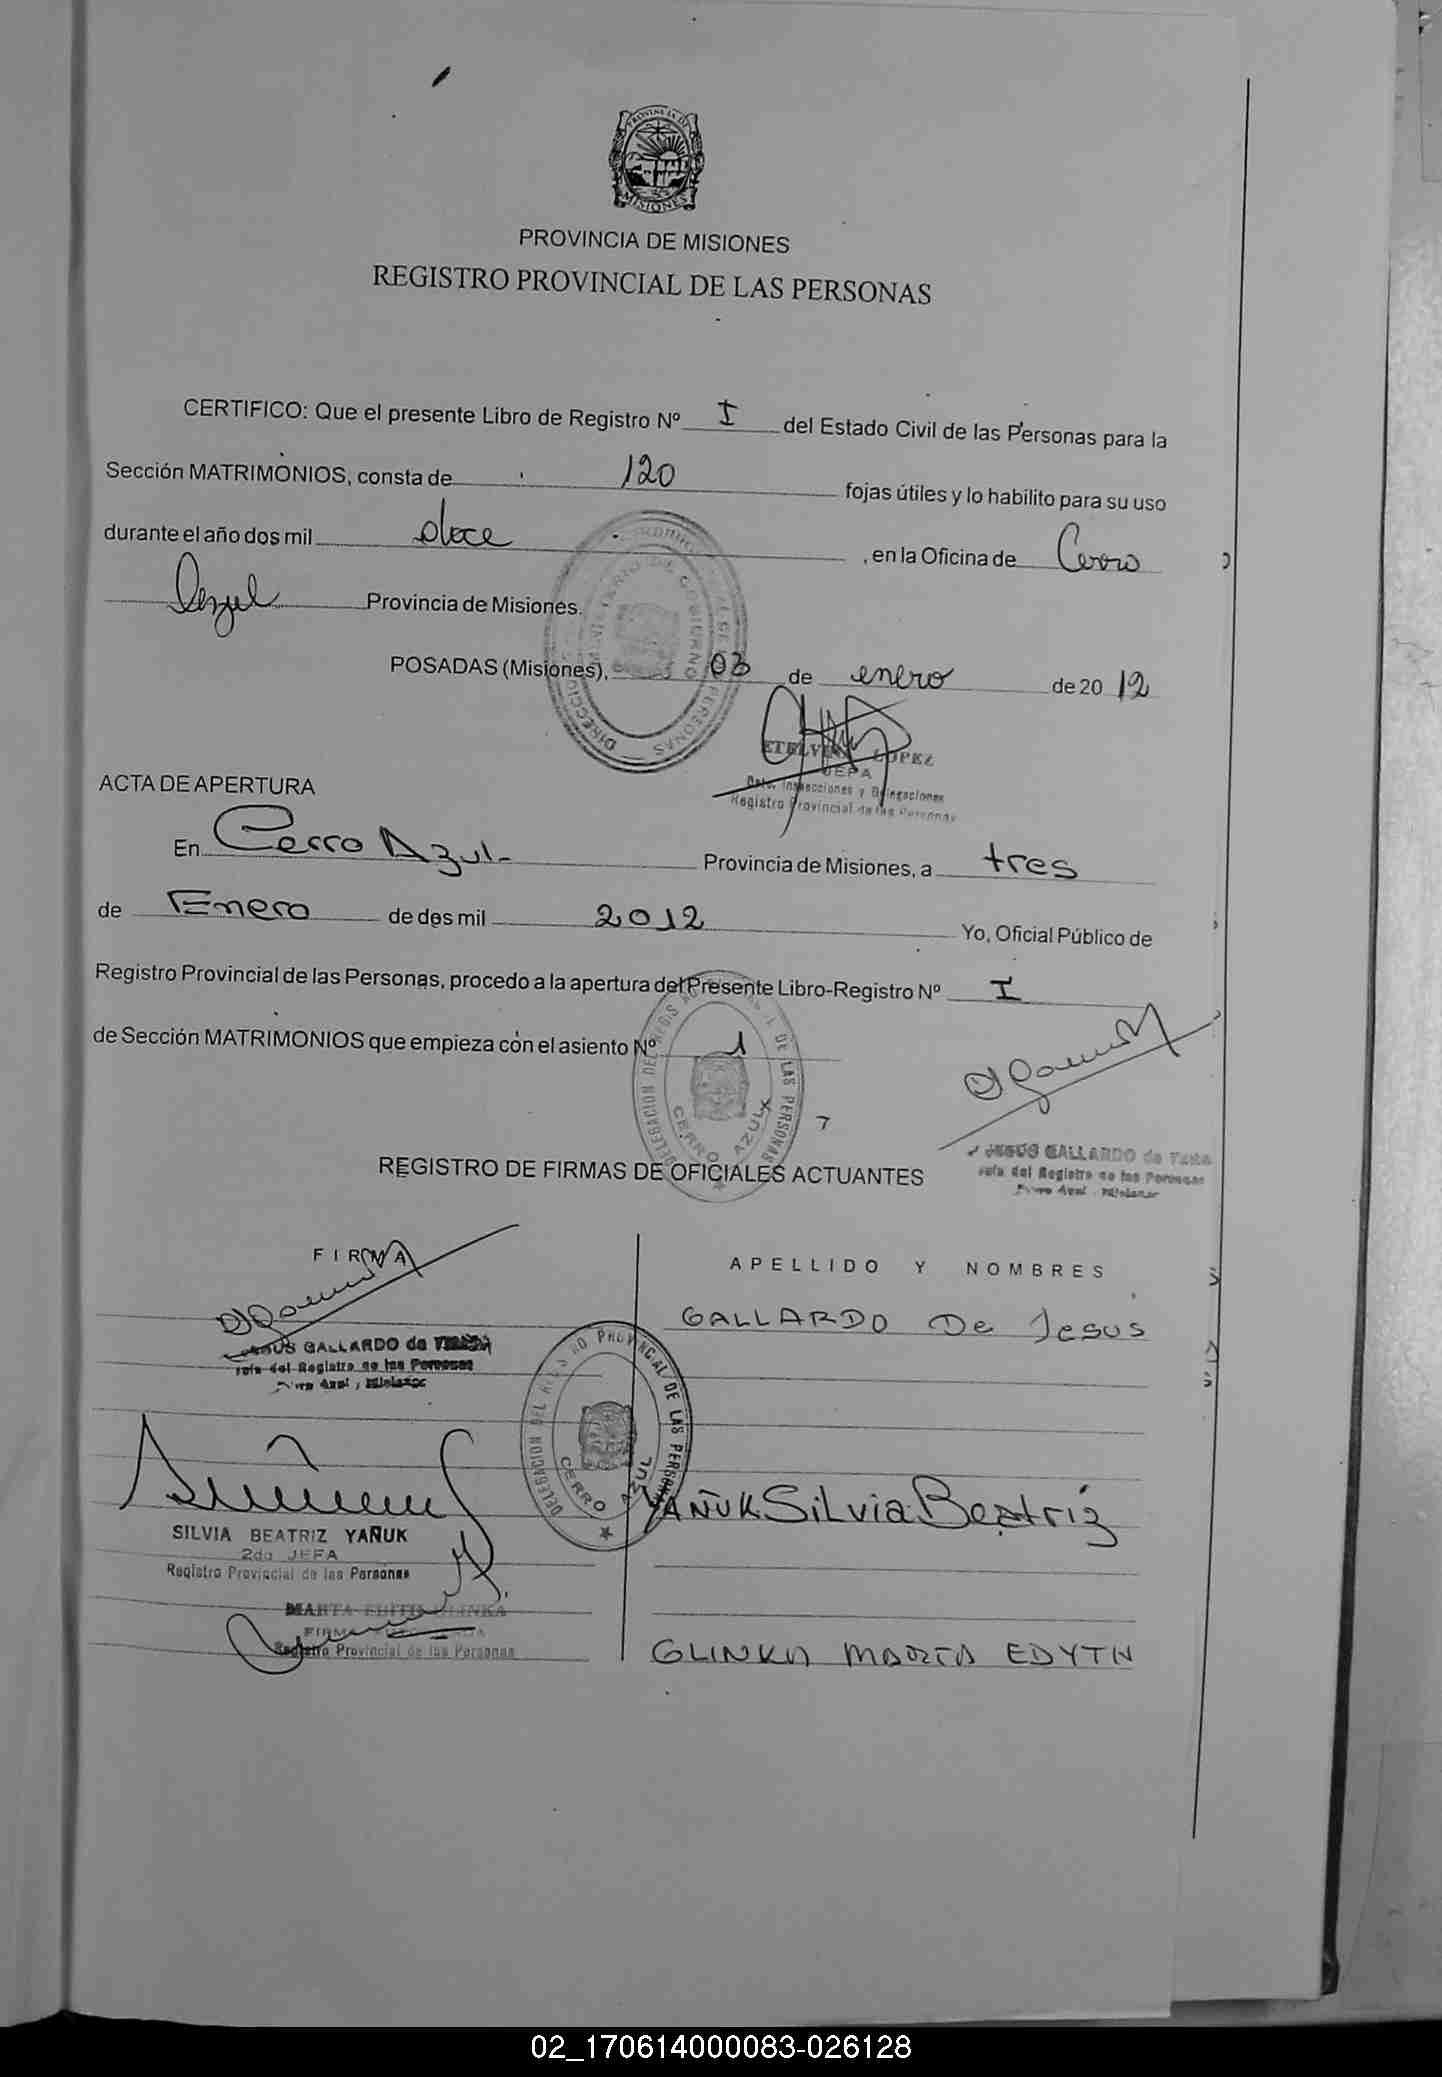 PROVINCIA DE MISIONES
PROVINCIA DE MISIONES
REGISTRO PROVINCIAL DE LAS PERSONAS
CERTIFICO: Que el presente Libro de Registro Nº I del Estado Civil de las Personas para la
Sección MATRIMONIOS, consta de 120 fojas útiles y lo habilito para su uso
durante el año dos mil doce, en la Oficina de Cerro
Azul Provincia de Misiones.
POSADAS (Misiones), 03 de enero de 2012
LOPEZ
JEFA
Dpto. Inspecciones y Delegaciones
Registro Provincial de las Personas
ACTA DE APERTURA
En Cerro Azul- Provincia de Misiones, a tres
de Enero de dos mil 2012 Yo, Oficial Público de
Registro Provincial de las Personas, procedo a la apertura del Presente Libro-Registro Nº I
de Sección MATRIMONIOS que empieza con el asiento Nº 1
DELEGACION DEL REGISTRO DE LAS PERSONAS
CERRO AZUL
JESUS GALLARDO de
Jefa del Registro de las Personas
Cerro Azul, Misiones
REGISTRO DE FIRMAS DE OFICIALES ACTUANTES
FIRMA APELLIDO Y NOMBRES
GALLARDO De Jesus
JESUS GALLARDO de
Jefa del Registro de las Personas
Cerro Azul, Misiones
DELEGACION DEL REGISTRO PROVINCIAL DE LAS PERSONAS
CERRO AZUL
YAÑUK Silvia Beatriz
SILVIA BEATRIZ YAÑUK
2da JEFA
Registro Provincial de las Personas
MARTA EDITH GLINKA
FIRMA
Registro Provincial de las Personas
GLINKA MARTA EDYTH
02_170614000083-026128